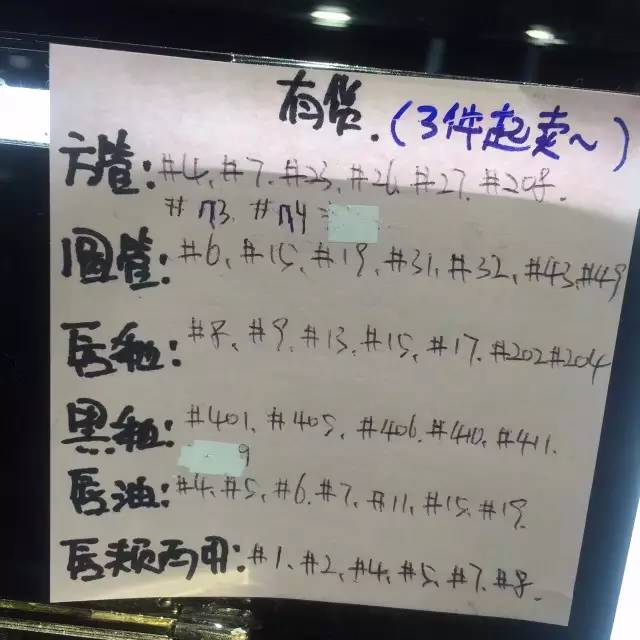 有货.(3件起卖~)
方管:#4、#7、#23、#26、#27、#208.
#n3、#n4、
圆管:#6、#15、#19、#31、#32、#43、#49
唇釉:#8、#9、#13、#15、#17、#202#204
黑釉:#401、#405、#406、#410、#411.
9
唇油:#4、#5、#6、#7、#11、#15、#19.
唇颊两用:#1、#2、#4、#5、#7、#8.